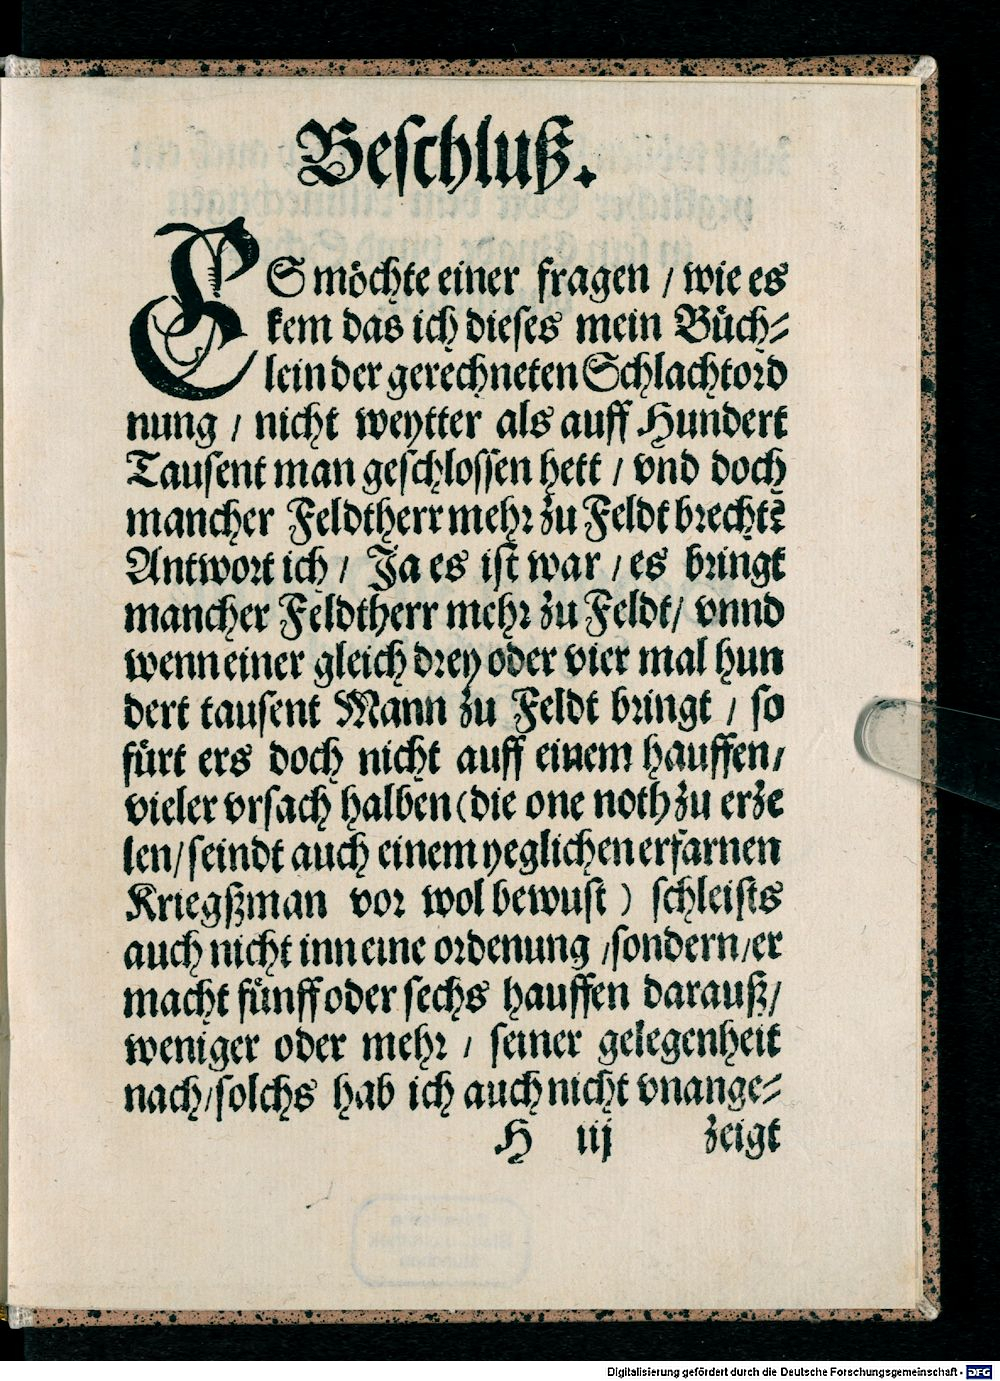 Beschluß.
ES möchte einer fragen / wie es
kem das ich dieses mein Büch⸗
lein der gerechneten Schlachtord
nung / nicht weytter als auff Hundert
Tausent man geschlossen hett / vnd doch
mancher Feldtherr mehr zu Feldt brechte?
Antwort ich / Ja es ist war / es bringt
mancher Feldtherr mehr zu Feldt / vnnd
wenn einer gleich drey oder vier mal hun
dert tausent Mann zu Feldt bringt / so
fürt ers doch nicht auff einem hauffen /
vieler vrsach halben (die one noth zu erze
len / seindt auch einem yeglichen erfarnen
Kriegßman vor wol bewust) schleists
auch nicht inn eine ordenung / sondern / er
macht fünff oder sechs hauffen darauß /
weniger oder mehr / seiner gelegenheit
nach / solchs hab ich auch nicht vnange⸗
H iij zeigt
Digitalisierung gefördert durch die Deutsche Forschungsgemeinschaft - DFG